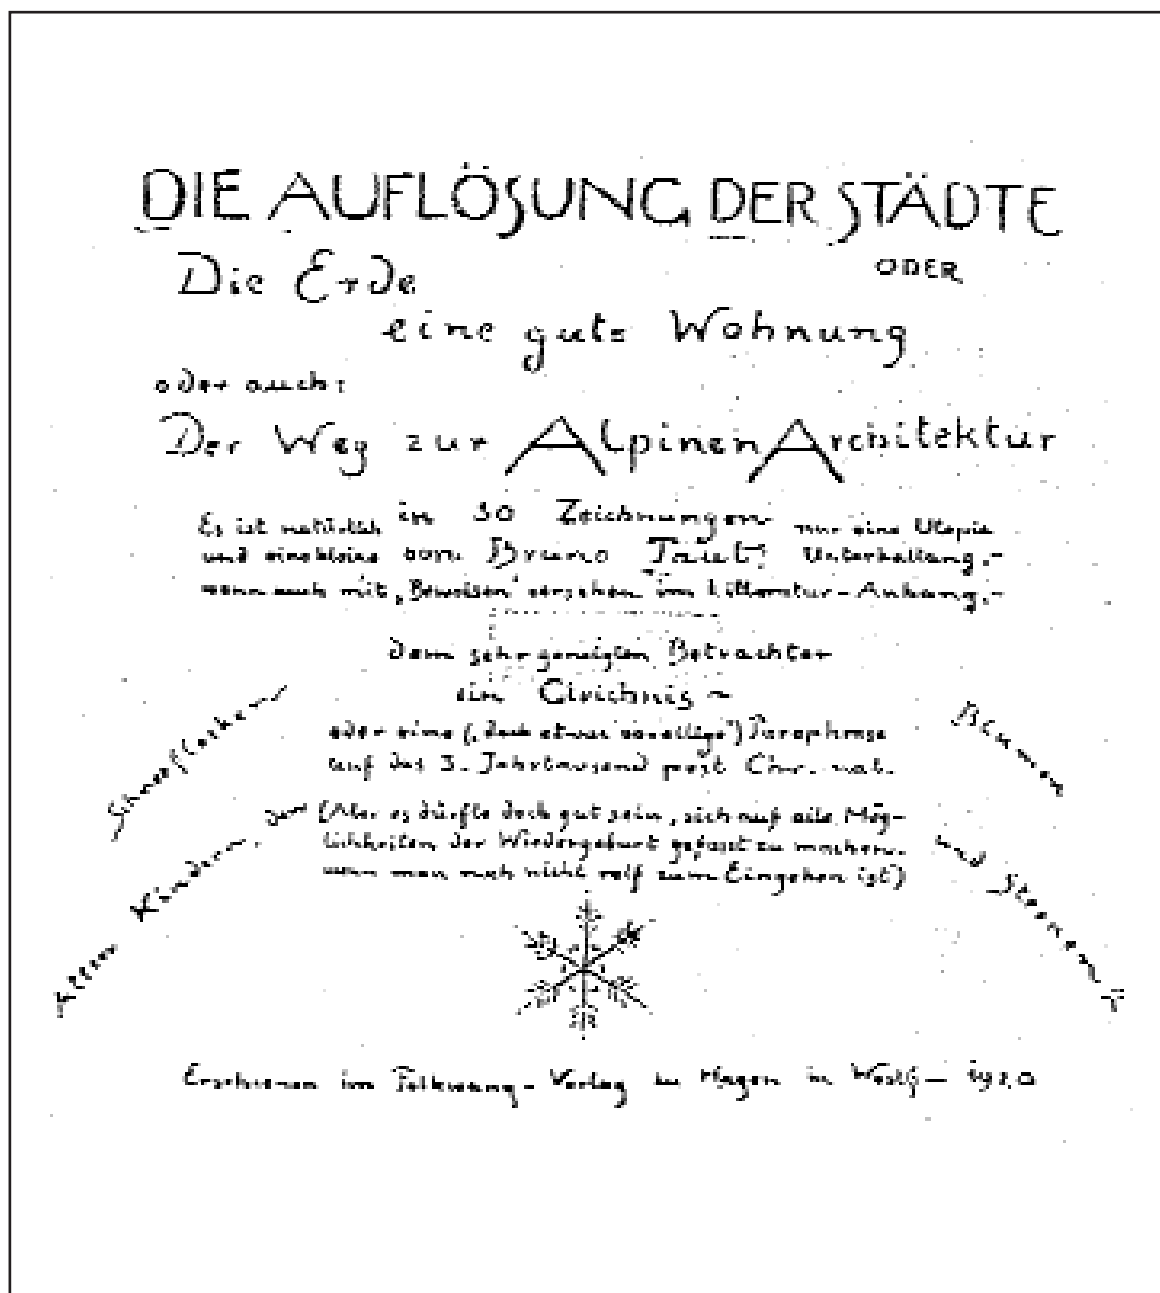 DIE AUFLÖSUNG DER STÄDTE
ODER
Die Erde
eine gute Wohnung
oder auch:
Der Weg zur Alpinen Architektur
in 30 Zeichnungen
Es ist natürlich nur eine Utopie
von Bruno Taut:
und eine kleine Unterhaltung.-
wenn auch mit „Beweisen" versehen im Litteratur-Anhang.-
dem sehr geneigten Betrachter
ein Gleichnis ~
oder eine („doch etwas") Paraphrase
auf das 3. Jahrtausend post Chr. nat.
(Aber es dürfte doch gut sein, sich auf alle Mög-
lichkeiten der Wiedergeburt gefasst zu machen.
wenn man noch nicht reif zum Eingehen ist)
Schneeflocken
Blumen
Allen Kindern, den
und Sternen
Erschienen im Folkwang-Verlag zu Hagen in Westf- 1920